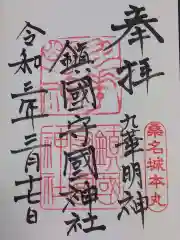 奉拝
桑名城本丸
九華明神
鎮國守國神社
令和三年三月十七日